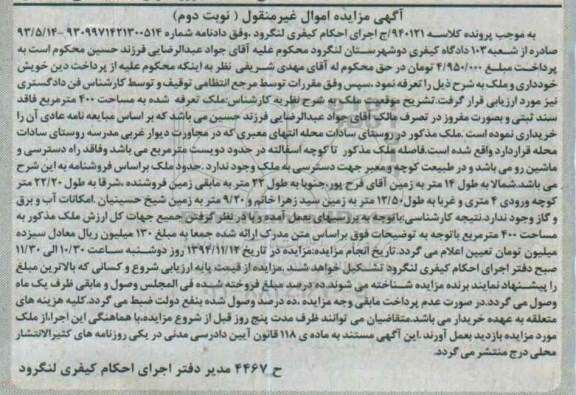 آگهی مزایده اموال غیرمنقول ( نوبت دوم)
به موجب پرونده کلاسه ۹۴۰۱۲۱/ج اجرای احکام کیفری لنگرود ،وفق دادنامه شماره ۹۳۰۹۹۷۱۴۲۱۳۰۰۵۱۴-۹۳/۵/۱۴
صادره از شعبه ۱۰۳ دادگاه کیفری دوشهرستان لنگرود محکوم علیه آقای جواد عبدالرضایی فرزند حسین محکوم است به
پرداخت مبلغ ۴/۹۵۰/۰۰۰ تومان در حق محکوم له آقای مهدی شریفی نظر به اینکه محکوم علیه از پرداخت دین خویش
خودداری و ملک به شرح ذیل را تعرفه نمود ،سپس وفق مقررات توسط مرجع انتظامی توقیف و توسط کارشناس فن دادگستری
نیز مورد ارزیابی قرار گرفت.تشریح موقعیت ملک به شرح نظریه کارشناس:ملک تعرفه شده به مساحت ۴۰۰ مترمربع فاقد
سند ثبتی و بصورت مفروز در تصرف مالک آقای جواد عبدالرضایی فرزند حسین می باشد که بر اساس مبایعه نامه عادی آن را
خریداری نموده است .ملک مذکور در روستای سادات محله انتهای معبری که در مجاورت دیوار غربی مدرسه روستای سادات
محله قراردارد واقع شده است.فاصله ملک مذکور تا کوچه اسفالته در حدود دویست مترمربع می باشد وفاقد راه دسترسی و
ماشین رو می باشد و در طبیعت کوچه و معبر جهت دسترسی به ملک وجود ندارد .حدود ملک براساس فروشنامه به این شرح
می باشد.شمالا به طول ۱۴ متر به زمین آقای فرح پور،جنوبا به طول ۲۲ متر به مابقی زمین فروشنده ،شرقا به طول ۲۲/۲۰ متر
کوچه ورودی ۴ متری و غربا به طول ۱۲/۵۰ متر به زمین سید زهرا خاتم و ۹/۲۰ متر به زمین شیخ حسینیان .امکانات آب و برق
و گاز وجود ندارد.نتیجه کارشناسی:باتوجه به بررسیهای بعمل آمده و با در نظر گرفتن جمیع جهات کل ارزش ملک مذکور به
مساحت ۴۰۰ مترمربع باتوجه به توضیحات فوق براساس متن مدرک ارائه شده جمعا به مبلغ ۱۳۰ میلیون ریال معادل سیزده
میلیون تومان تعیین اعلام می گردد.تاریخ انجام مزایده:مزایده در تاریخ ۱۳۹۴/۱۱/۱۲ روز دوشنبه ساعت ۱۰/۳۰ الی ۱۱/۳۰
صبح دفتر اجرای احکام کیفری لنگرود تشکیل خواهد شد .مزایده از قیمت پایه ارزیابی شروع و کسانی که بالاترین مبلغ
را پیشنهاد نمایند برنده مزایده شناخته می شوند .ده درصد مبلغ فروخته شده فی المجلس وصول و مابقی ظرف یک ماه
وصول می گردد.در صورت عدم پرداخت مابقی وجه مزایده ،ده درصد وصول شده بنفع دولت ضبط می گردد.کلیه هزینه های
متعلقه به عهده خریدار می باشد.متقاضیان می توانند ظرف مدت پنج روز قبل از شروع مزایده،با هماهنگی این اجرا،از ملک
مورد مزایده بازدید بعمل آورند .این آگهی مستند به ماده ی ۱۱۸ قانون آیین دادرسی مدنی در یکی روزنامه های کثیرالانتشار
محلی درج منتشر می گردد.
ح ۴۴۶۷ مدیر دفتر اجرای احکام کیفری لنگرود